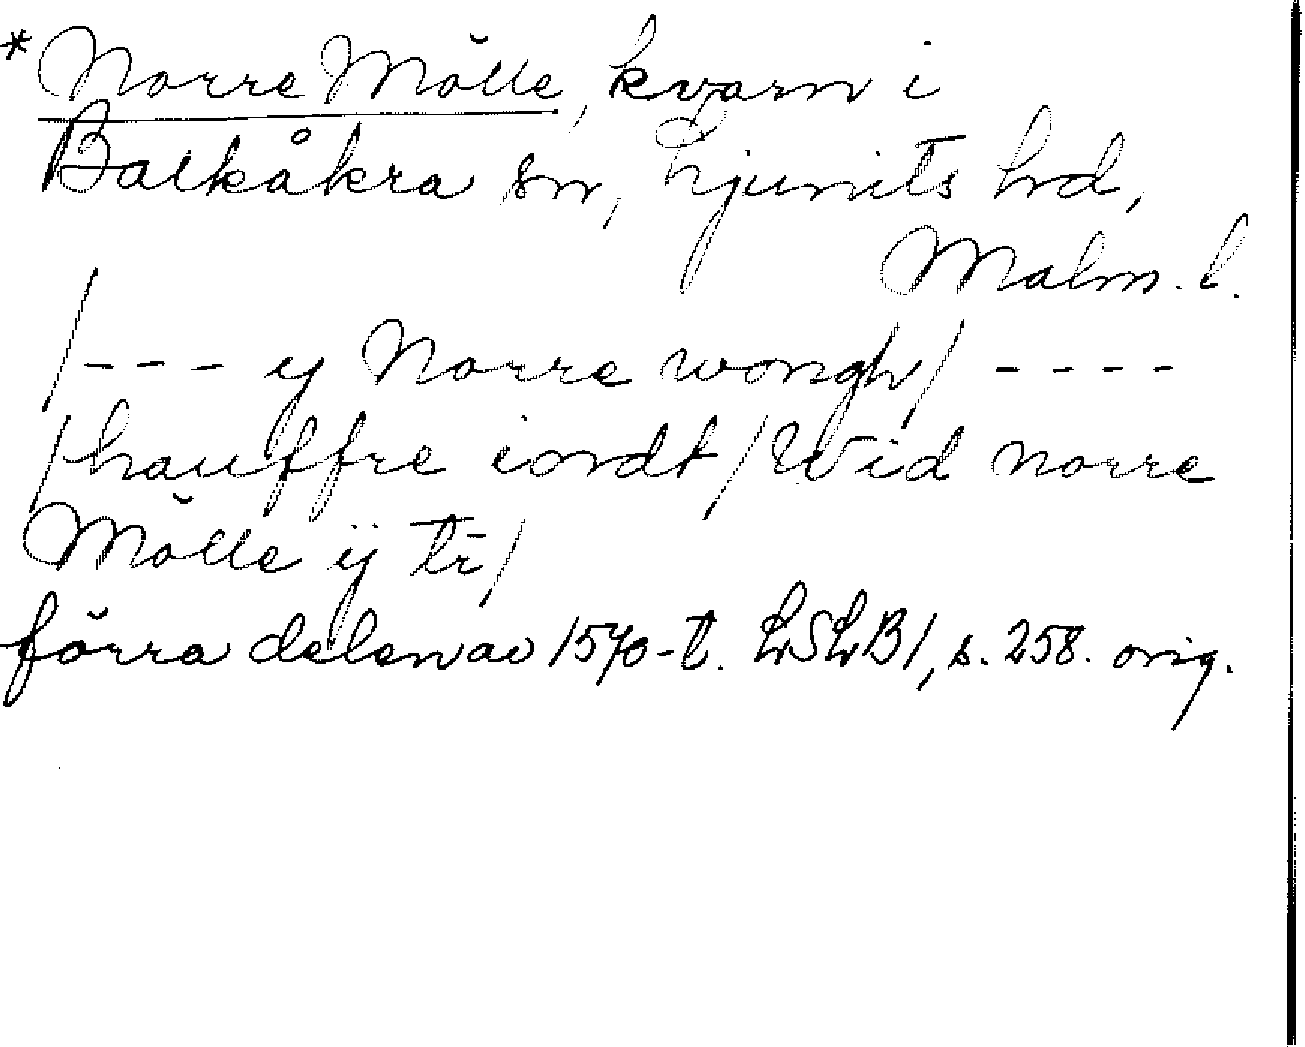 *Norre Mölle, kvarn i
Balkåkra sn, Ljunits hd,
Malm. l.
/--- y Norre wongh/ ----
/hauffre iordt/Wid norre
Mölle ÿ tr/
förra delen av 1570-t. LSLB1, s. 258. orig.